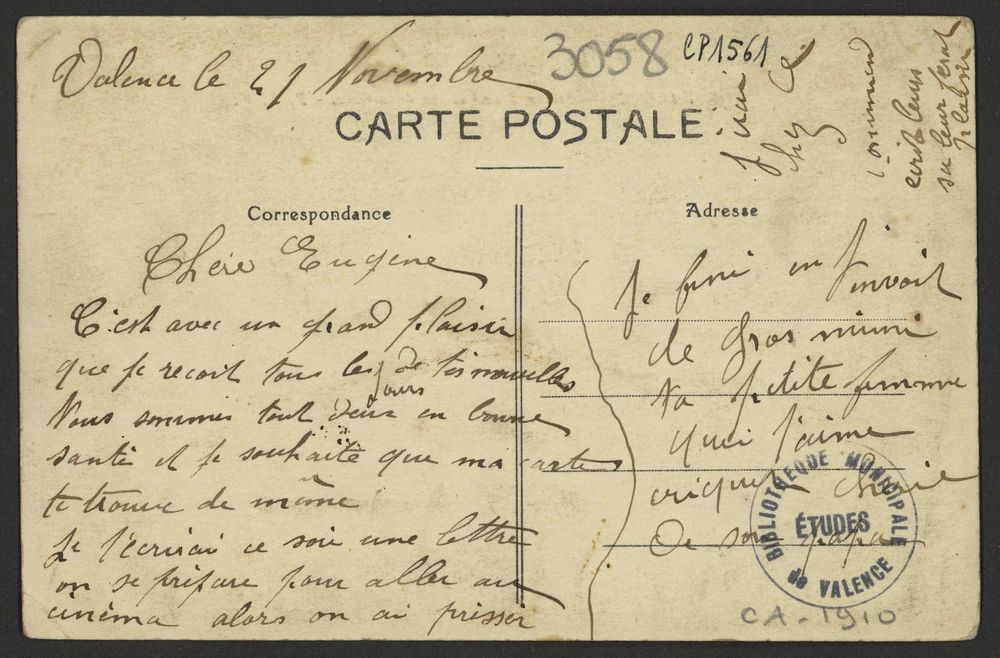 Valence le 21 Novembre
3058 CP1561
CARTE POSTALE
Correspondance
Chere Eugene
C'est avec un grand plaisir
que je recoit tous les jours de tes nouvelles
Nous sommes tout deux en bonne
santé et je souhaite que ma carte
te trouve de même
Je t'ecrirai ce soir une lettre
on se prepare pour aller au
cinema alors on ai presser
Adresse
Je fini en t'envoit
de Gros mimi
Ta petite femme
qui t'aime
criquet cherie
De son papa
ecrit leurs
sa leur ferai
plaisir
BIBLIOTHEQUE MUNICIPALE
ÉTUDES
de VALENCE
CA. 1910